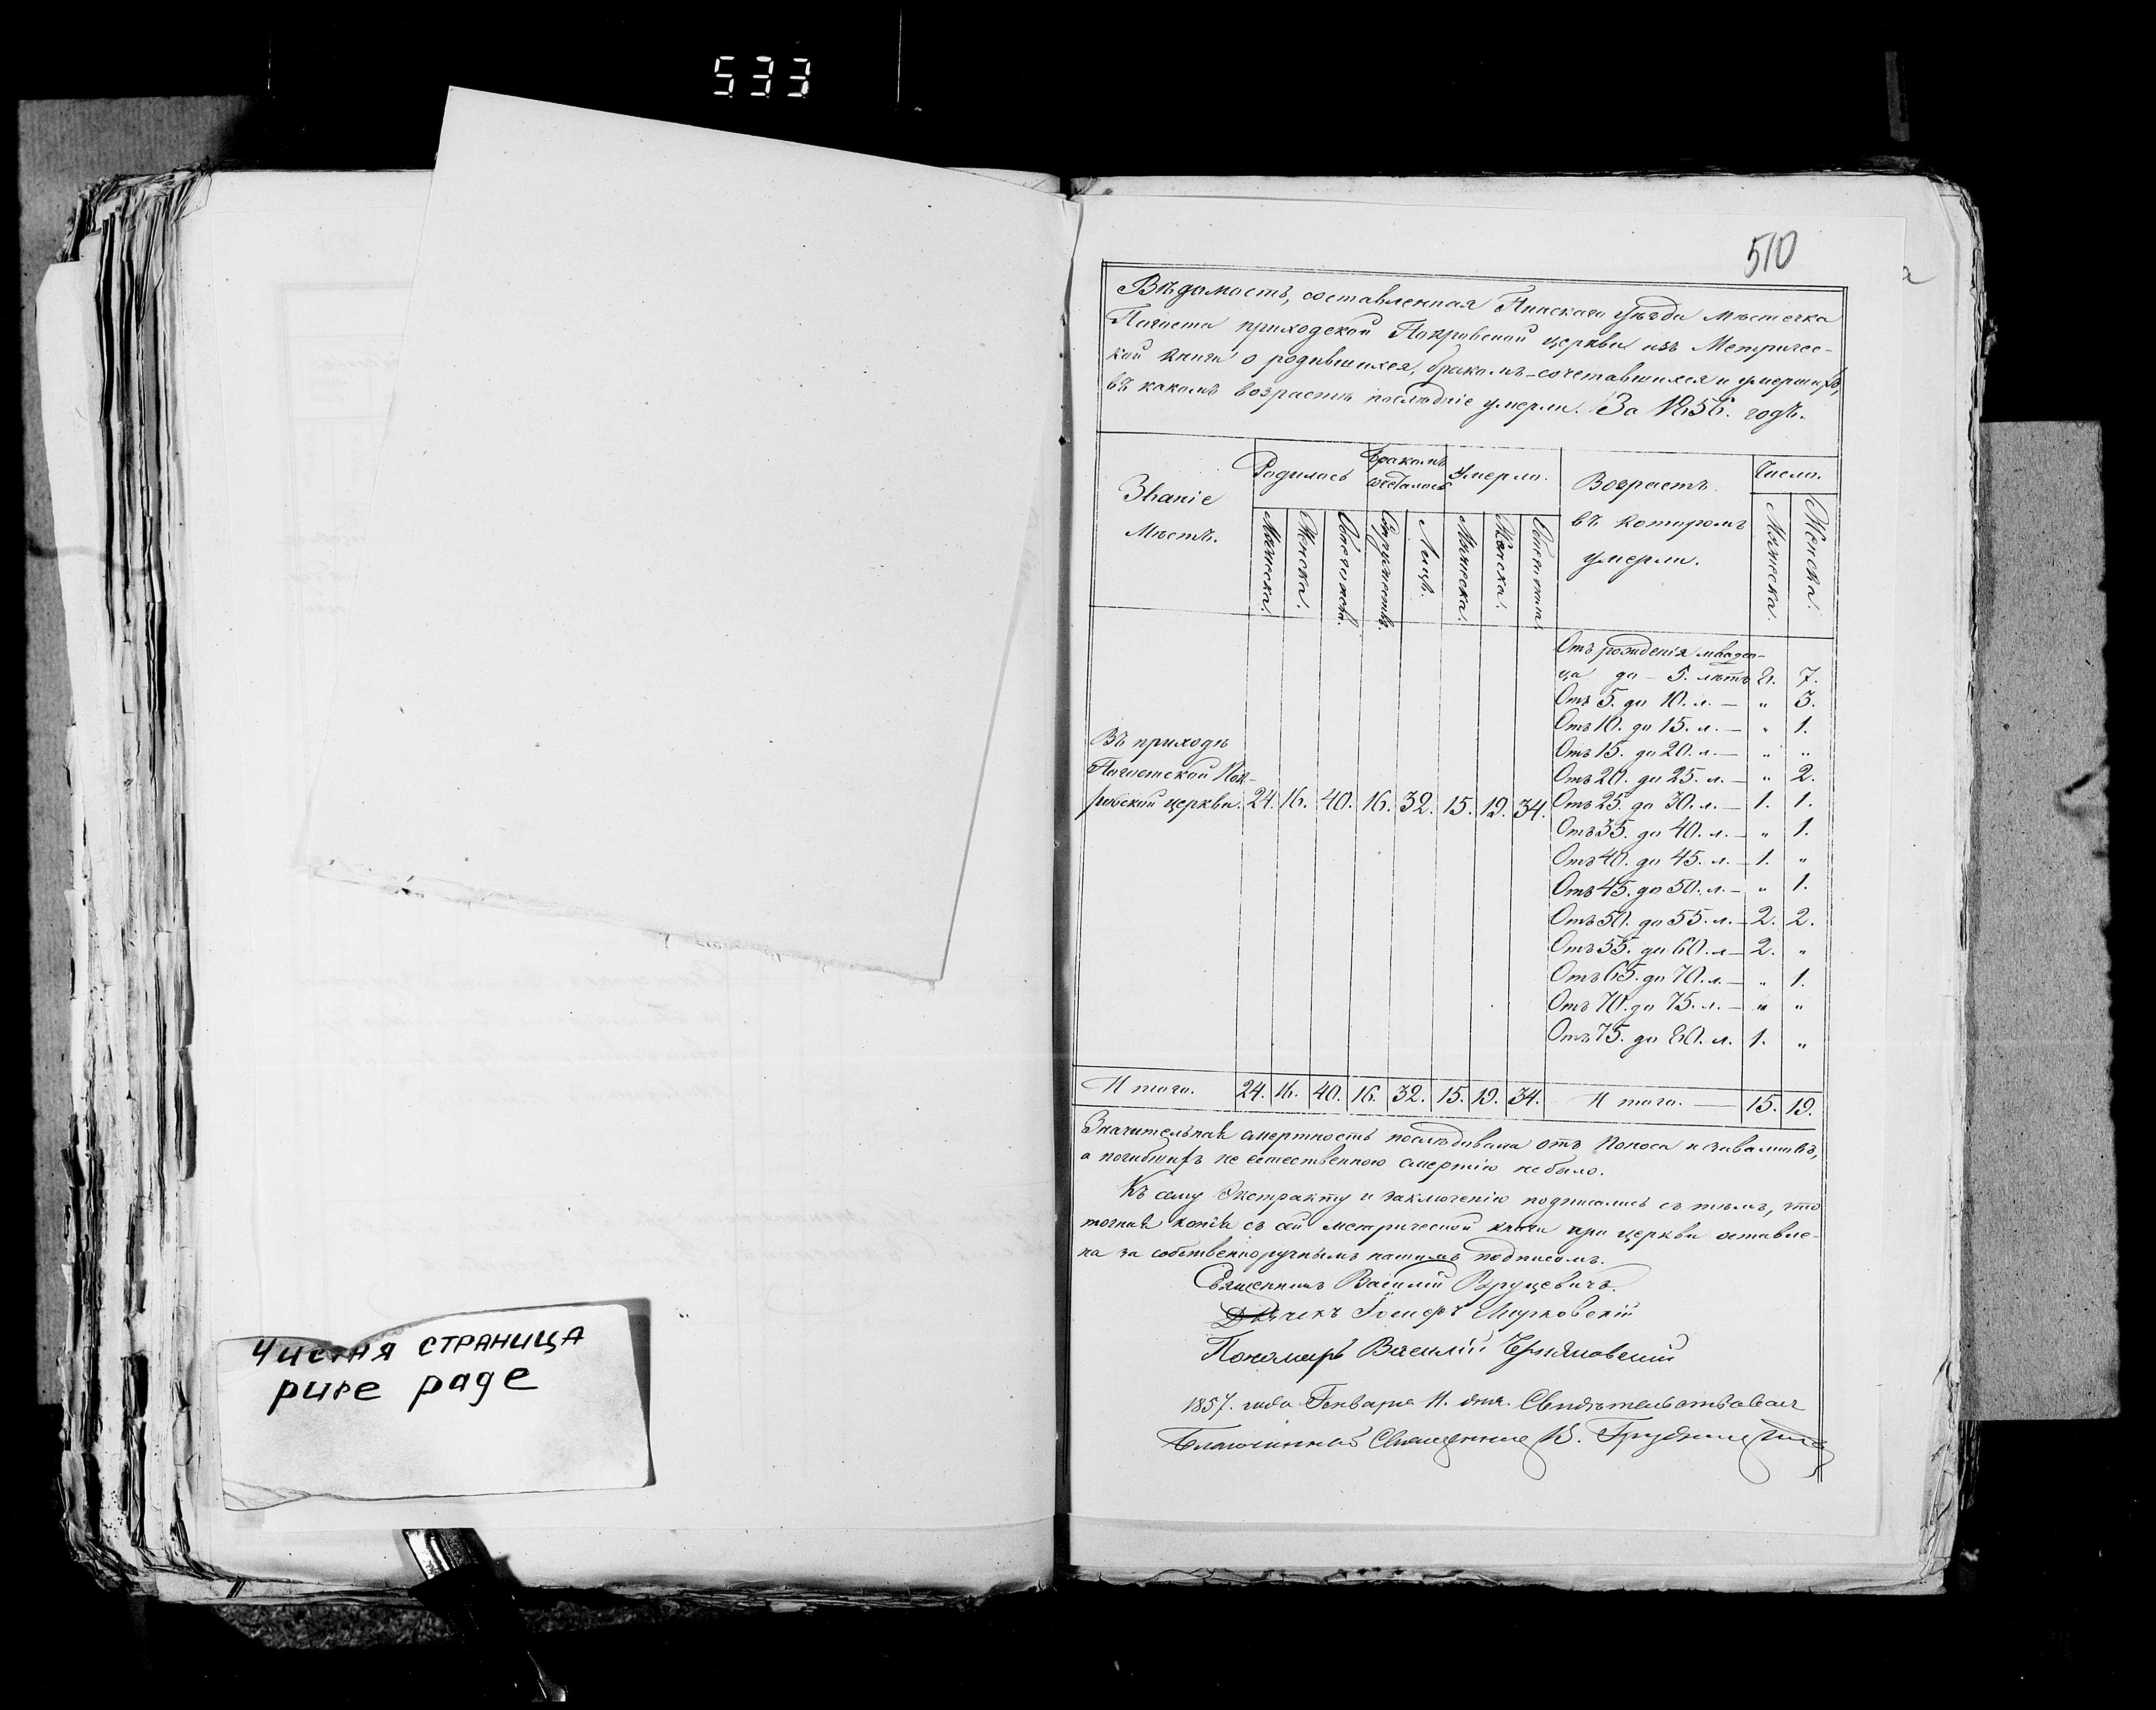 533
510
Вѣдомость, составленная Пинскаго Уѣзда Мѣстечка
Погоста приходской Покровской церкви изъ Метричес-
кой книги о родившихся, бракомъ-сочетавшихся и умершихъ,
въ какомъ возрастѣ послѣдніе умерли. За 1856. годъ.
Званіе Мѣстъ. Родилось Бракомъ сочеталось Умерло. Возрастъ въ которомъ умерли. Число.
Мужеска. Женска. Обоего пола. Супружествъ. Лицъ. Мужеска. Женска. Обоего пола. Мужеска. Женска.
Отъ рожденія младен-
ца до 5. лѣтъ 8. 7.
Отъ 5. до 10. л. — „ 3.
Отъ 10. до 15. л. — „ 1.
Отъ 15. до 20. л. — „ „
Отъ 20. до 25. л. — „ 2.
Въ приходѣ
Погостской Пок-
ровской церкви. 24. 16. 40. 16. 32. 15. 19. 34. Отъ 25. до 30. л. — 1. 1.
Отъ 35. до 40. л. — „ 1.
Отъ 40. до 45. л. — 1. „
Отъ 45. до 50. л. — „ 1.
Отъ 50. до 55. л. — 2. 2.
Отъ 55. до 60. л. — 2. „
Отъ 65. до 70. л. — „ 1.
Отъ 70. до 75. л. — „ „
Отъ 75. до 80. л. 1. „
Итого. 24. 16. 40. 16. 32. 15. 19. 34. Итого. — 15. 19.
Значительная смертность послѣдовала отъ поноса и
а погибшихъ не естественною смертію небыло.
Къ сему Экстракту и заключенію подписались съ тѣмъ, что
точная копія съ сей метрической книги при церкви оставле-
на за собственноручнымъ нашимъ подписомъ.
Священникъ Василій Вруцевичъ.
Дьячекъ Іосифъ Мурковскій
Пономарь Василій
1857. года Генваря 11. дня. Свидѣтельствовалъ
Благочинный Священникъ В.
Чистая страница
pure page